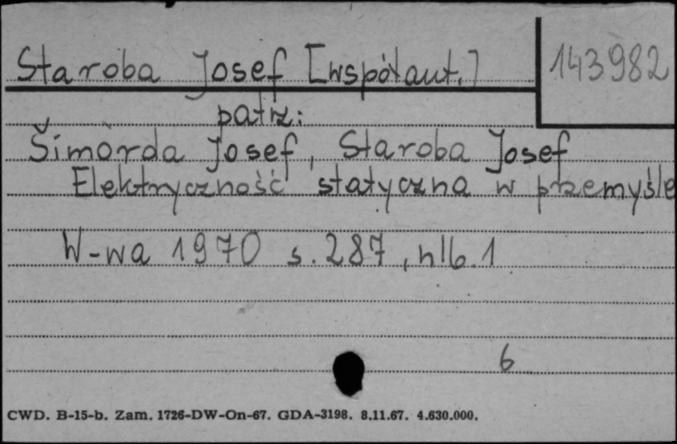 Staroba Josef [współaut.]
143982
patrz:
Šimorda Josef, Staroba Josef
Elektryczność statyczna w przemyśle
W-wa 1970 s. 287, nlb. 1
6
CWD. B-15-b. Zam. 1726-DW-On-67. GDA-3198. 8.11.67. 4.630.000.